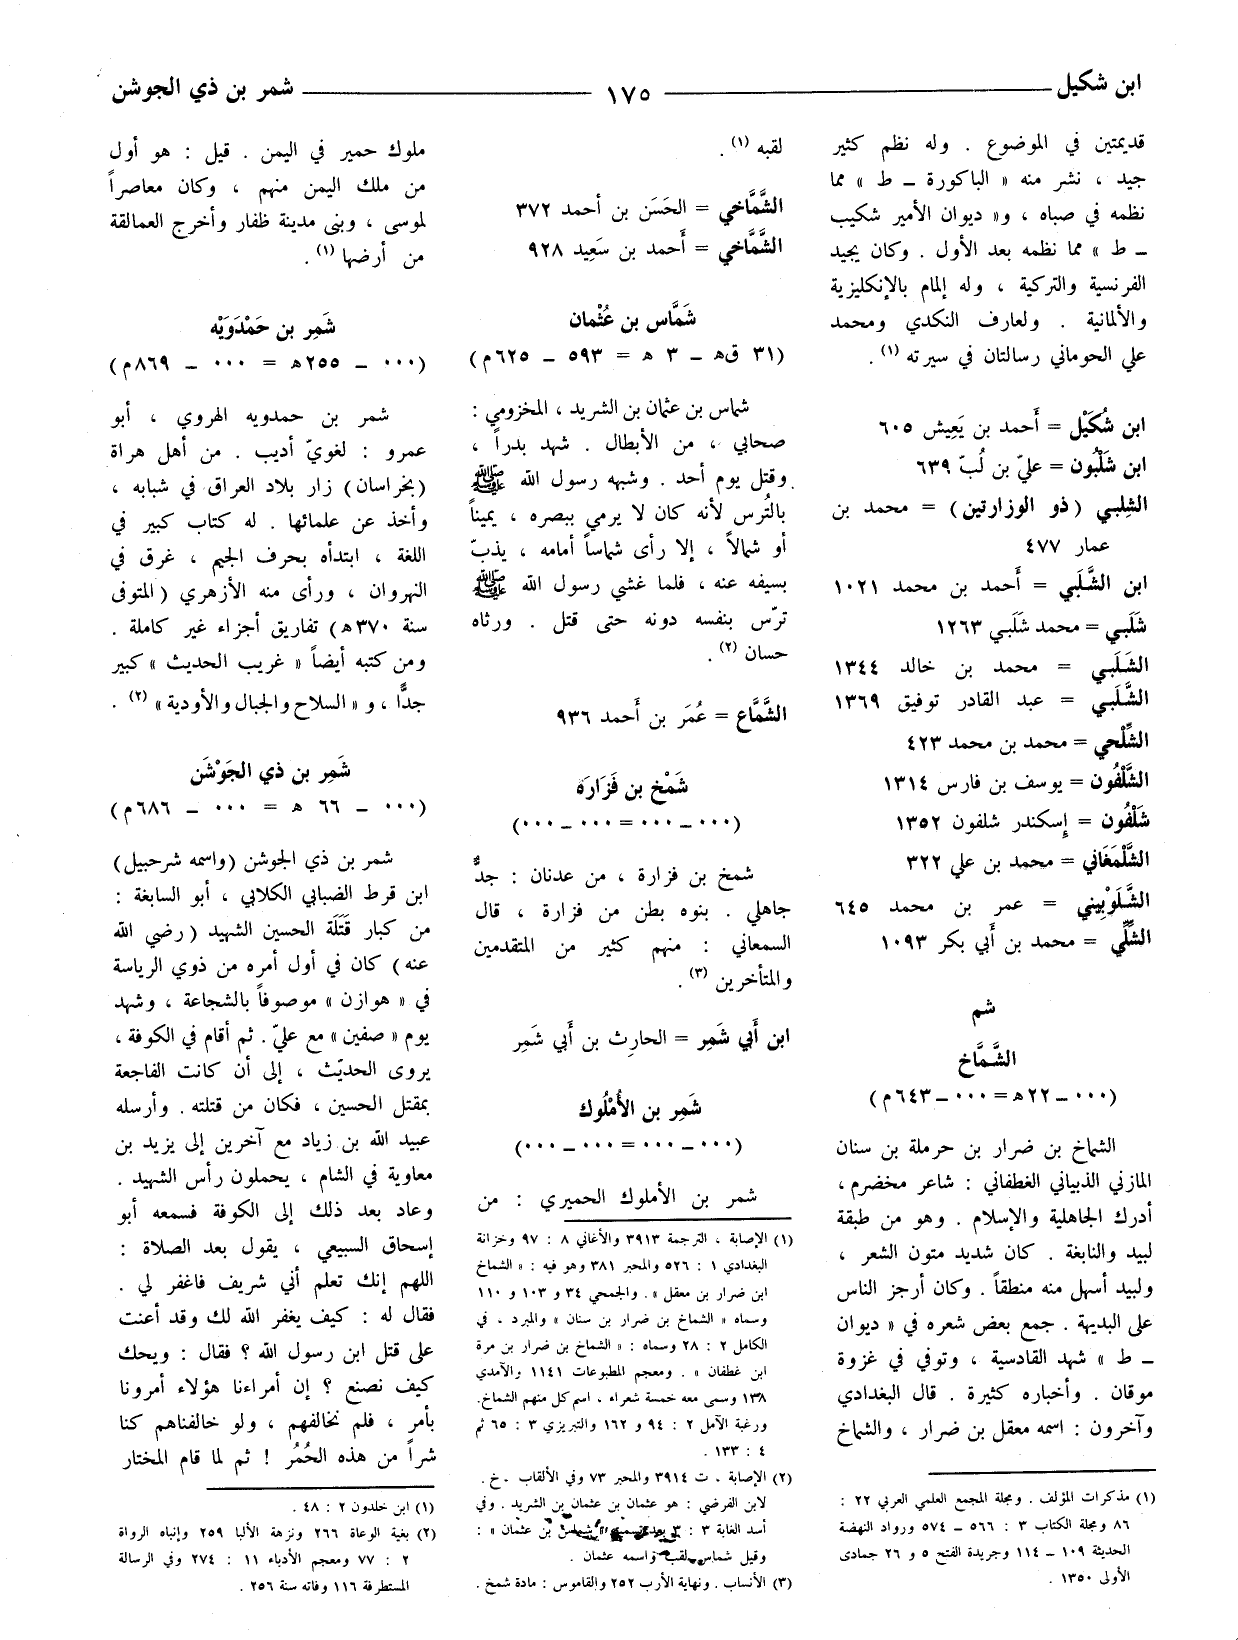 ابن شكيل ــــــ ١٧٥ ــــــ شمر بن ذي الجوشن
قديمتين في الموضوع . وله نظم كثير
جيد ، نشر منه « الباكورة ـ ط » مما
نظمه في صباه ، و« ديوان الأمير شكيب
ـ ط » مما نظمه بعد الأول . وكان يجيد
الفرنسية والتركية ، وله إلمام بالإنكليزية
والألمانية . ولعارف النكدي ومحمد
علي الحوماني رسالتان في سيرته (١) .
ابن شُكَيْل = أَحمد بن يَعِيش ٦٠٥
ابن شَلْبُون = عليّ بن لُبّ ٦٣٩
الشِلبي (ذو الوزارتين) = محمد بن
عمار ٤٧٧
ابن الشَّلَبي = أَحمد بن محمد ١٠٢١
شَلَبي = محمد شَلَبي ١٢٦٣
الشَلَبي = محمد بن خالد ١٣٤٤
الشَّلَبي = عبد القادر توفيق ١٣٦٩
الشِّلْحي = محمد بن محمد ٤٢٣
الشَّلْفُون = يوسف بن فارس ١٣١٤
شَلْفُون = إِسكندر شلفون ١٣٥٢
الشَّلْمَغَاني = محمد بن علي ٣٢٢
الشَّلَوْبِيني = عمر بن محمد ٦٤٥
الشِّلِّي = محمد بن أَبي بكر ١٠٩٣
شم
الشَّمَّاخ
(٠٠٠ ـ ٢٢ه = ٠٠٠ ـ ٦٤٣م)
الشماخ بن ضرار بن حرملة بن سنان
المازني الذبياني الغطفاني : شاعر مخضرم ،
أدرك الجاهلية والإسلام . وهو من طبقة
لبيد والنابغة . كان شديد متون الشعر ،
ولبيد أسهل منه منطقاً . وكان أرجز الناس
على البديهة . جمع بعض شعره في « ديوان
ـ ط » شهد القادسية ، وتوفي في غزوة
موقان . وأخباره كثيرة . قال البغدادي
وآخرون : اسمه معقل بن ضرار ، والشماخ
(١) مذكرات المؤلف . ومجلة المجمع العلمي العربي ٢٢ :
٨٦ ومجلة الكتاب ٣ : ٥٦٦ ـ ٥٧٤ ورواد النهضة
الحديثة ١٠٩ ـ ١١٤ وجريدة الفتح ٥ و ٢٦ جمادى
الأولى ١٣٥٠ .
لقبه (١) .
الشَّمَّاخي = الحَسَن بن أحمد ٣٧٢
الشَّمَّاخي = أَحمد بن سَعِيد ٩٢٨
شَمَّاس بن عُثْمان
(٣١ ق‍ه ـ ٣ ه = ٥٩٣ ـ ٦٢٥م)
شماس بن عثمان بن الشريد ، المخزومي :
صحابي ، من الأبطال . شهد بدراً ،
وقتل يوم أحد . وشبهه رسول الله ﷺ
بالتُرس لأنه كان لا يرمي ببصره ، يميناً
أو شمالاً ، إلا رأى شماساً أمامه ، يذبّ
بسيفه عنه ، فلما غشي رسول الله ﷺ
ترّس بنفسه دونه حتى قتل . ورثاه
حسان (٢) .
الشَّمَّاع = عُمَر بن أَحمد ٩٣٦
شَمْخ بن فَزَارَة
(٠٠٠ ـ ٠٠٠ = ٠٠٠ ـ ٠٠٠)
شمخ بن فزارة ، من عدنان : جدٌّ
جاهلي . بنوه بطن من فزارة ، قال
السمعاني : منهم كثير من المتقدمين
والمتأخرين (٣) .
ابن أَبي شَمِر = الحارِث بن أَبي شَمِر
شَمِر بن الأُمْلُوك
(٠٠٠ ـ ٠٠٠ = ٠٠٠ ـ ٠٠٠)
شمر بن الأملوك الحميري : من
(١) الإصابة ، الترجمة ٣٩١٣ والأغاني ٨ : ٩٧ وخزانة
البغدادي ١ : ٥٢٦ والمحبر ٣٨١ وهو فيه : « الشماخ
ابن ضرار بن معقل » . والجمحي ٣٤ و ١٠٣ و ١١٠
وسماه « الشماخ بن ضرار بن سنان » والمبرد . في
الكامل ٢ : ٢٨ وسماه : « الشماخ بن ضرار بن مرة
ابن غطفان » . ومعجم المطبوعات ١١٤١ والآمدي
١٣٨ وسمى معه خمسة شعراء ، اسم كل منهم الشماخ.
ورغبة الآمل ٢ : ٩٤ و ١٦٢ والتبريزي ٣ : ٦٥ ثم
٤ : ١٣٣ .
(٢) الإصابة ، ت ٣٩١٤ والمحبر ٧٣ وفي الألقاب ـ خ .
لابن الفرضي : هو عثمان بن عثمان بن الشريد . وفي
أسد الغابة ٣ : بن عثمان » :
وقيل شماس لقب واسمه عثمان .
(٣) الأنساب . ونهاية الأرب ٢٥٢ والقاموس : مادة شمخ .
ملوك حمير في اليمن . قيل : هو أول
من ملك اليمن منهم ، وكان معاصراً
لموسى ، وبنى مدينة ظفار وأخرج العمالقة
من أرضها (١) .
شَمِر بن حَمْدَوَيْه
(٠٠٠ ـ ٢٥٥ه = ٠٠٠ ـ ٨٦٩م)
شمر بن حمدويه الهروي ، أبو
عمرو : لغويّ أديب . من أهل هراة
(بخراسان) زار بلاد العراق في شبابه ،
وأخذ عن علمائها . له كتاب كبير في
اللغة ، ابتدأه بحرف الجيم ، غرق في
النهروان ، ورأى منه الأزهري (المتوفى
سنة ٣٧٠ه) تفاريق أجزاء غير كاملة .
ومن كتبه أيضاً « غريب الحديث » كبير
جدًّا ، و « السلاح والجبال والأودية » (٢) .
شَمِر بن ذي الجَوْشَن
(٠٠٠ ـ ٦٦ ه = ٠٠٠ ـ ٦٨٦م)
شمر بن ذي الجوشن (واسمه شرحبيل)
ابن قرط الضبابي الكلابي ، أبو السابغة :
من كبار قَتَلَة الحسين الشهيد (رضي الله
عنه) كان في أول أمره من ذوي الرياسة
في « هوازن » موصوفاً بالشجاعة ، وشهد
يوم « صفين » مع عليّ. ثم أقام في الكوفة ،
يروى الحديّث ، إلى أن كانت الفاجعة
بمقتل الحسين ، فكان من قتلته . وأرسله
عبيد الله بن زياد مع آخرين إلى يزيد بن
معاوية في الشام ، يحملون رأس الشهيد .
وعاد بعد ذلك إلى الكوفة فسمعه أبو
إسحاق السبيعي ، يقول بعد الصلاة :
اللهم إنك تعلم أني شريف فاغفر لي .
فقال له : كيف يغفر الله لك وقد أعنت
على قتل ابن رسول الله ؟ فقال : ويحك
كيف نصنع ؟ إن أمراءنا هؤلاء أمرونا
بأمر ، فلم نخالفهم ، ولو خالفناهم كنا
شراً من هذه الحُمُر ! ثم لما قام المختار
(١) ابن خلدون ٢ : ٤٨ .
(٢) بغية الوعاة ٢٦٦ ونزهة الألبا ٢٥٩ وإنباه الرواة
٢ : ٧٧ ومعجم الأدباء ١١ : ٢٧٤ وفي الرسالة
المستطرفة ١١٦ وفاته سنة ٢٥٦ .